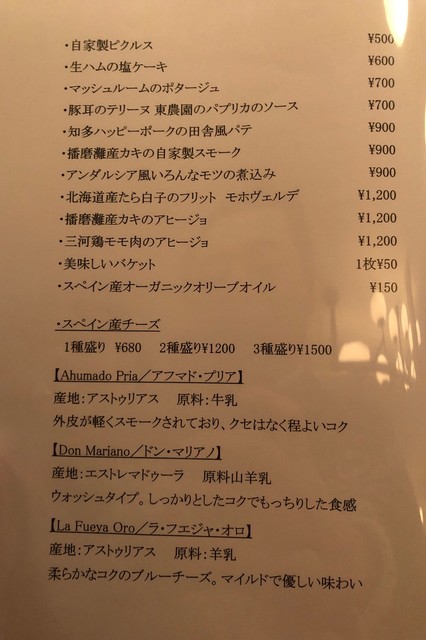 ・自家製ピクルス ¥500
・生ハムの塩ケーキ ¥600
・マッシュルームのポタージュ ¥700
・豚耳のテリーヌ 東農園のパプリカのソース ¥700
・知多ハッピーポークの田舎風パテ ¥900
・播磨灘産カキの自家製スモーク ¥900
・アンダルシア風いろんなモツの煮込み ¥900
・北海道産たら白子のフリット モホヴェルデ ¥1,200
・播磨灘産カキのアヒージョ ¥1,200
・三河鶏モモ肉のアヒージョ ¥1,200
・美味しいバケット 1枚¥50
・スペイン産オーガニックオリーブオイル ¥150
・スペイン産チーズ
1種盛り ¥680 2種盛り¥1200 3種盛り¥1500
【Ahumado Pria／アフマド・プリア】
産地：アストゥリアス 原料：牛乳
外皮が軽くスモークされており、クセはなく程よいコク
【Don Mariano／ドン・マリアノ】
産地：エストレマドゥーラ 原料山羊乳
ウォッシュタイプ。しっかりとしたコクでもっちりした食感
【La Fueya Oro／ラ・フエジャ・オロ】
産地：アストゥリアス 原料：羊乳
柔らかなコクのブルーチーズ。マイルドで優しい味わい